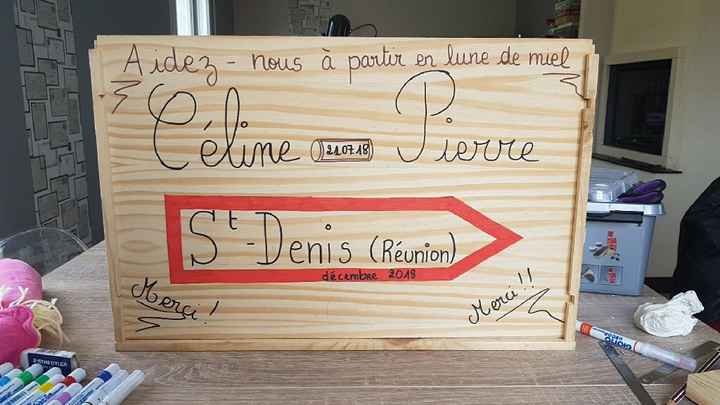 Aidez-nous à partir en lune de miel
Céline 21.07.18 Pierre
St-Denis (Réunion)
décembre 2018
Merci!
Merci!!
STAEDTLER